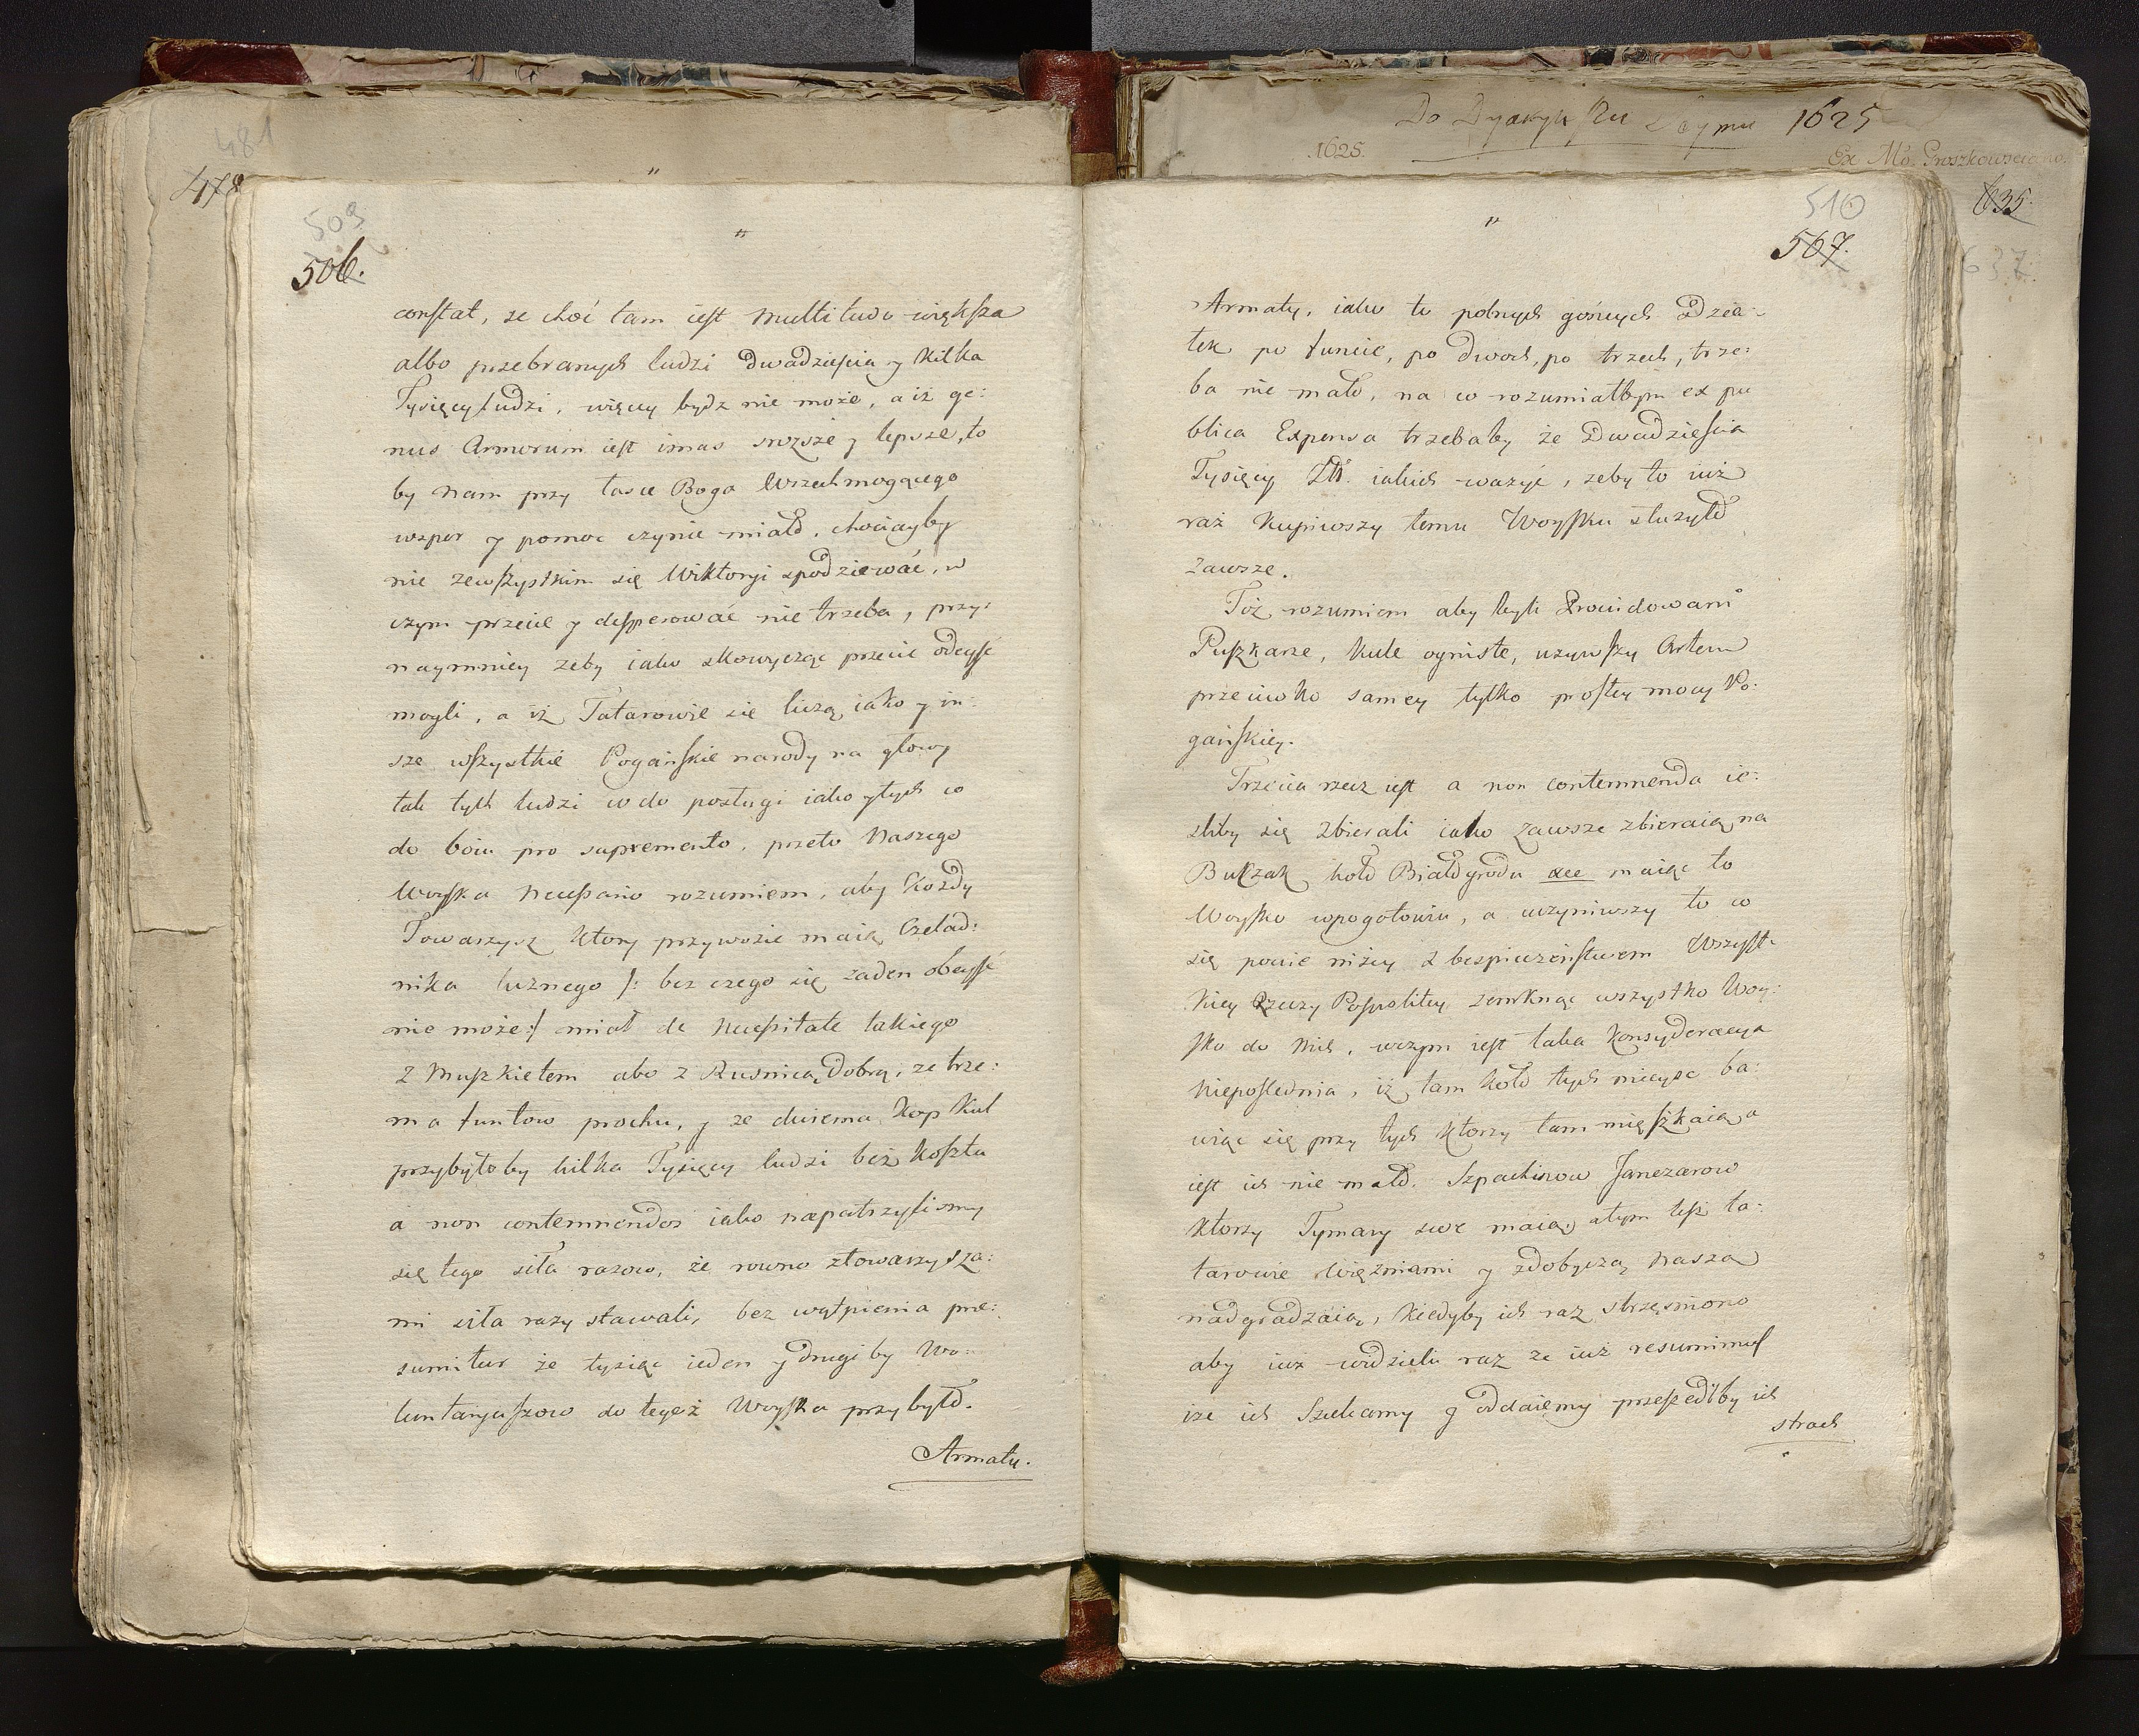 481
478
"
509
506.
"
constat, że choć tam iest multitudo większa
albo przebranych ludzi dwadzieścia y kilka
Tysięcy ludzi, więcey bydz nie może, a iż ge:
nus Armorum iest imas sroższe y lepsze, to
by nam przy łasce Boga Wszechmogącego
wspor y pomoc czynić miało, chociażby
nie zewszystkim się Wiktoryi spodziewać, w
czym przecie y desperować nie trzeba, przy:
naymniey żeby iako skowycząc przecie odeyść
mogli, a iż Tatarowie się liczą iako y in:
sze wszystkie Pogańskie narody na głowy
tak tych ludzi co do posługi iako y tych co
do boiu pro supremento, przeto Naszego
Woyska necessario rozumiem, aby każdy
Towarzysz ktory przywozie maią Czelad:
nika luznego /: bez czego się żaden obeyść
nie może :/ miał de necessitate takiego
z Muszkietem abo z Rusnicą dobrą, ze trze:
ma funtow prochu, y ze dwiema kop kul
przybyłoby kilka Tysięcy ludzi bez kosztu
a non contemnendos iako napatrzylismy
się tego siła razow, że rowno ztowarzysza:
mi siła razy stawali, bez wątpienia pre:
sumitur że tysiąc ieden y drugi by Wo:
luntaryuszow do tegoż Woyska przybyło.
Armaty.
Do Dyaryuszu Seymu 1625
1625.
Ex Mo. Proszkowsciano.
635.
637.
"
510
507.
Armaty, iako to polnych gońcych Dzia:
łek po funcie, po dwoch, po trzech, trze:
ba nie mało, na co rozumiałbym ex pu
blica Expensa trzebaby że Dwadzieścia
Tysięcy Zł. iakich ważyć, żeby to iuż
raz kupiwszy temu Woysku służyło
zawsze.
Toż rozumiem aby byli Prowidowani
Puszkarze, kule ogniste, używszy Artem
przeciwko samey tylko prostey mocy Po:
gańskiey.
Trzecia rzecz iest a non contemnenda ie:
śliby się zbierali iako zawsze zbieraią na
Budzak koło Białogrodu maiąc to
Woysko wpogotowiu, a uczyniwszy to co
się powie niżey z bespieczeństwem Wszyst
kiey Rzeczy Pospolitey zemknąć wszystko Woy:
sko do nich, wczym iest taka konsyderacya
nieposlednia, iż tam koło tych mieysc ba:
wiąc się przy tych ktorzy tam mięszkaią a
iest ich nie mało. Szpachiow Janczarow
ktorzy Tymary swe maią, atym tesz ta:
tarowie więzniami y zdobyczą naszą
nadgradzaią, kiedyby ich raz strzęsniono
aby iuż widzieli raz że iuż resumimus
ize ich Szukamy y oddaiemy przeszedłby ich
strach